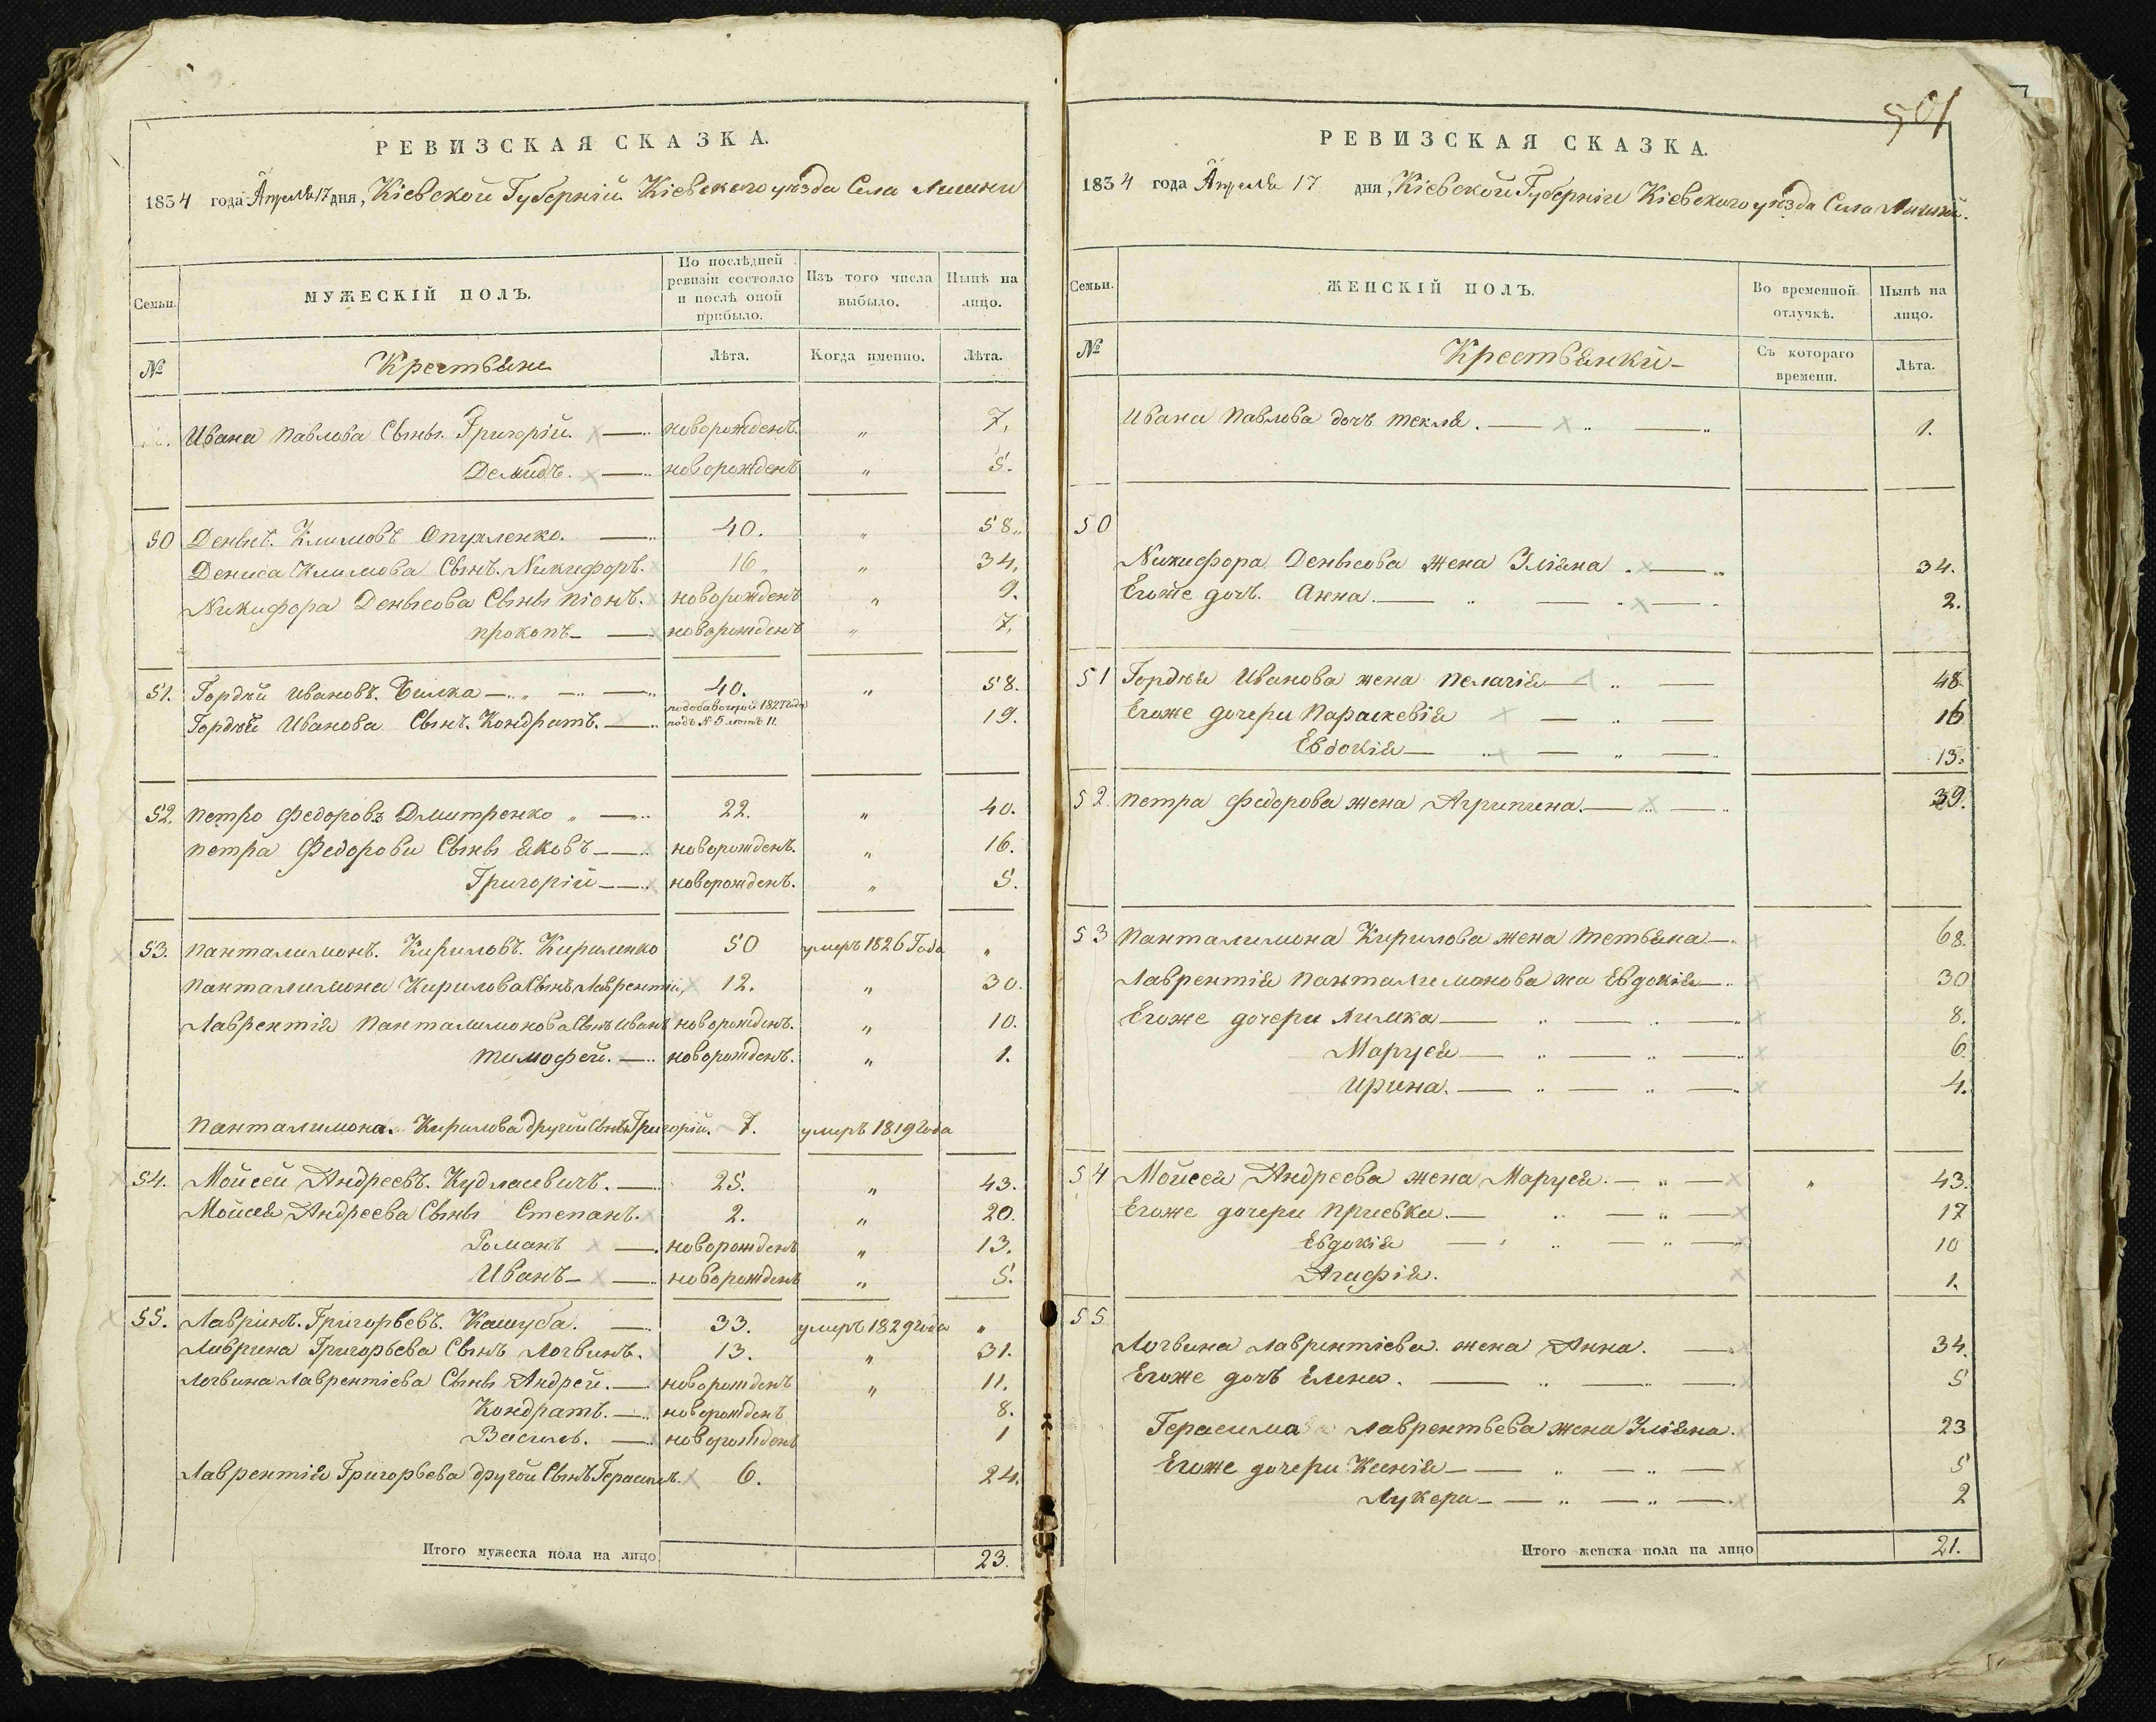 РЕВИЗСКАЯ СКАЗКА.
1834 года Апреля 17 дня, Кіевской Губерніи Кіевского уѣзда Села
Семьи. МУЖЕСКІЙ ПОЛЪ. По послѣдней ревизіи состояло и послѣ оной прибыло. Изъ того числа выбыло. Нынѣ на лицо.
№ Крестьяне Лѣта. Когда именно. Лѣта.
Ивана Павлова Сыны. Григорій. новорожденъ. „ 7.
Демидъ. новорожденъ „ 5.
50 Денысъ. Климовъ 40. „ 58.
Дениса Климова Сынъ. Никифоръ. 16. „ 34.
Никифора Денысова Сыны Піонъ. новорожденъ „ 9.
прокопъ новорожденъ „ 7.
51. Гордѣй Ивановъ. Билка 40. „ 58.
Гордѣя Иванова Сынъ. Кондратъ. 1827 года подъ № 5 лѣтъ 11. 19.
52. петро Федоровъ Дмитренко „ 22. „ 40.
петра Федорова Сыны Яковъ новорожденъ. „ 16.
Григорій новорожденъ. „ 5.
53. панталимонъ. Кириловъ. Кириленко 50 умеръ 1826 Года „
панталимона Кирилова Сынъ Лаврентій, 12. „ 30.
Лаврентія панталимонова Сынъ Иванъ новорожденъ. „ 10.
тимофей. новорожденъ. „ 1.
панталимона. Кирилова другой Сынъ Григорій. 7. умеръ 1819 года
54. Мойсей Андреевъ. Кудлаевичъ. 25. „ 43.
Мойсея Андреева Сыны Степанъ. 2. „ 20.
Романъ новорожденъ „ 13.
Иванъ новорожденъ „ 5.
55. Лаврінъ. Григорьевъ. Кашуба. 33. умеръ 1829 года „
Лаврина Григорьева Сынъ Логвинъ. 13. „ 31.
Логвина Лаврентіева Сыны Андрей. новорожденъ „ 11.
Кондратъ. новорожденъ 8.
Василь. новорожденъ 1
Лаврентія Григорьева другой Сынъ Герасимъ. 6. 24.
Итого мужеска пола на лицо 23.
501
РЕВИЗСКАЯ СКАЗКА.
1834 года Апреля 17 дня, Кіевской Губерніи Кіевского уѣзда Села
Семьи. ЖЕНСКІЙ ПОЛЪ. Во временной отлучкѣ. Нынѣ на лицо.
№ Крестьянки Съ котораго времени. Лѣта.
Ивана Павлова дочъ текля. 1.
50
Никифора Денысова жена Уліяна 34.
Егоже дочъ. Анна. 2.
51 Гордѣя Иванова жена пелагія 48.
Егоже дочери Параскевія 16
Евдокія 13.
52. петра Федорова жена Агрипина. 39.
53 панталимона Кирилова жена тетьяна 68.
Лаврентія панталимонова жа Евдокія 30
Егоже дочери 8.
Маруся 6.
Ирина. 4.
54 Мойсея Андреева жена Маруся. „ 43.
Егоже дочери 17
Евдокія 10
Агафія. 1.
55
Логвина Лаврентіева. жена Анна. 34.
Егоже дочъ Елена. 5
Герасима Лаврентьева жена Уліяна. 23
Егоже дочери Ксенія 5
Лукера 2
Итого женска пола на лицо 21.